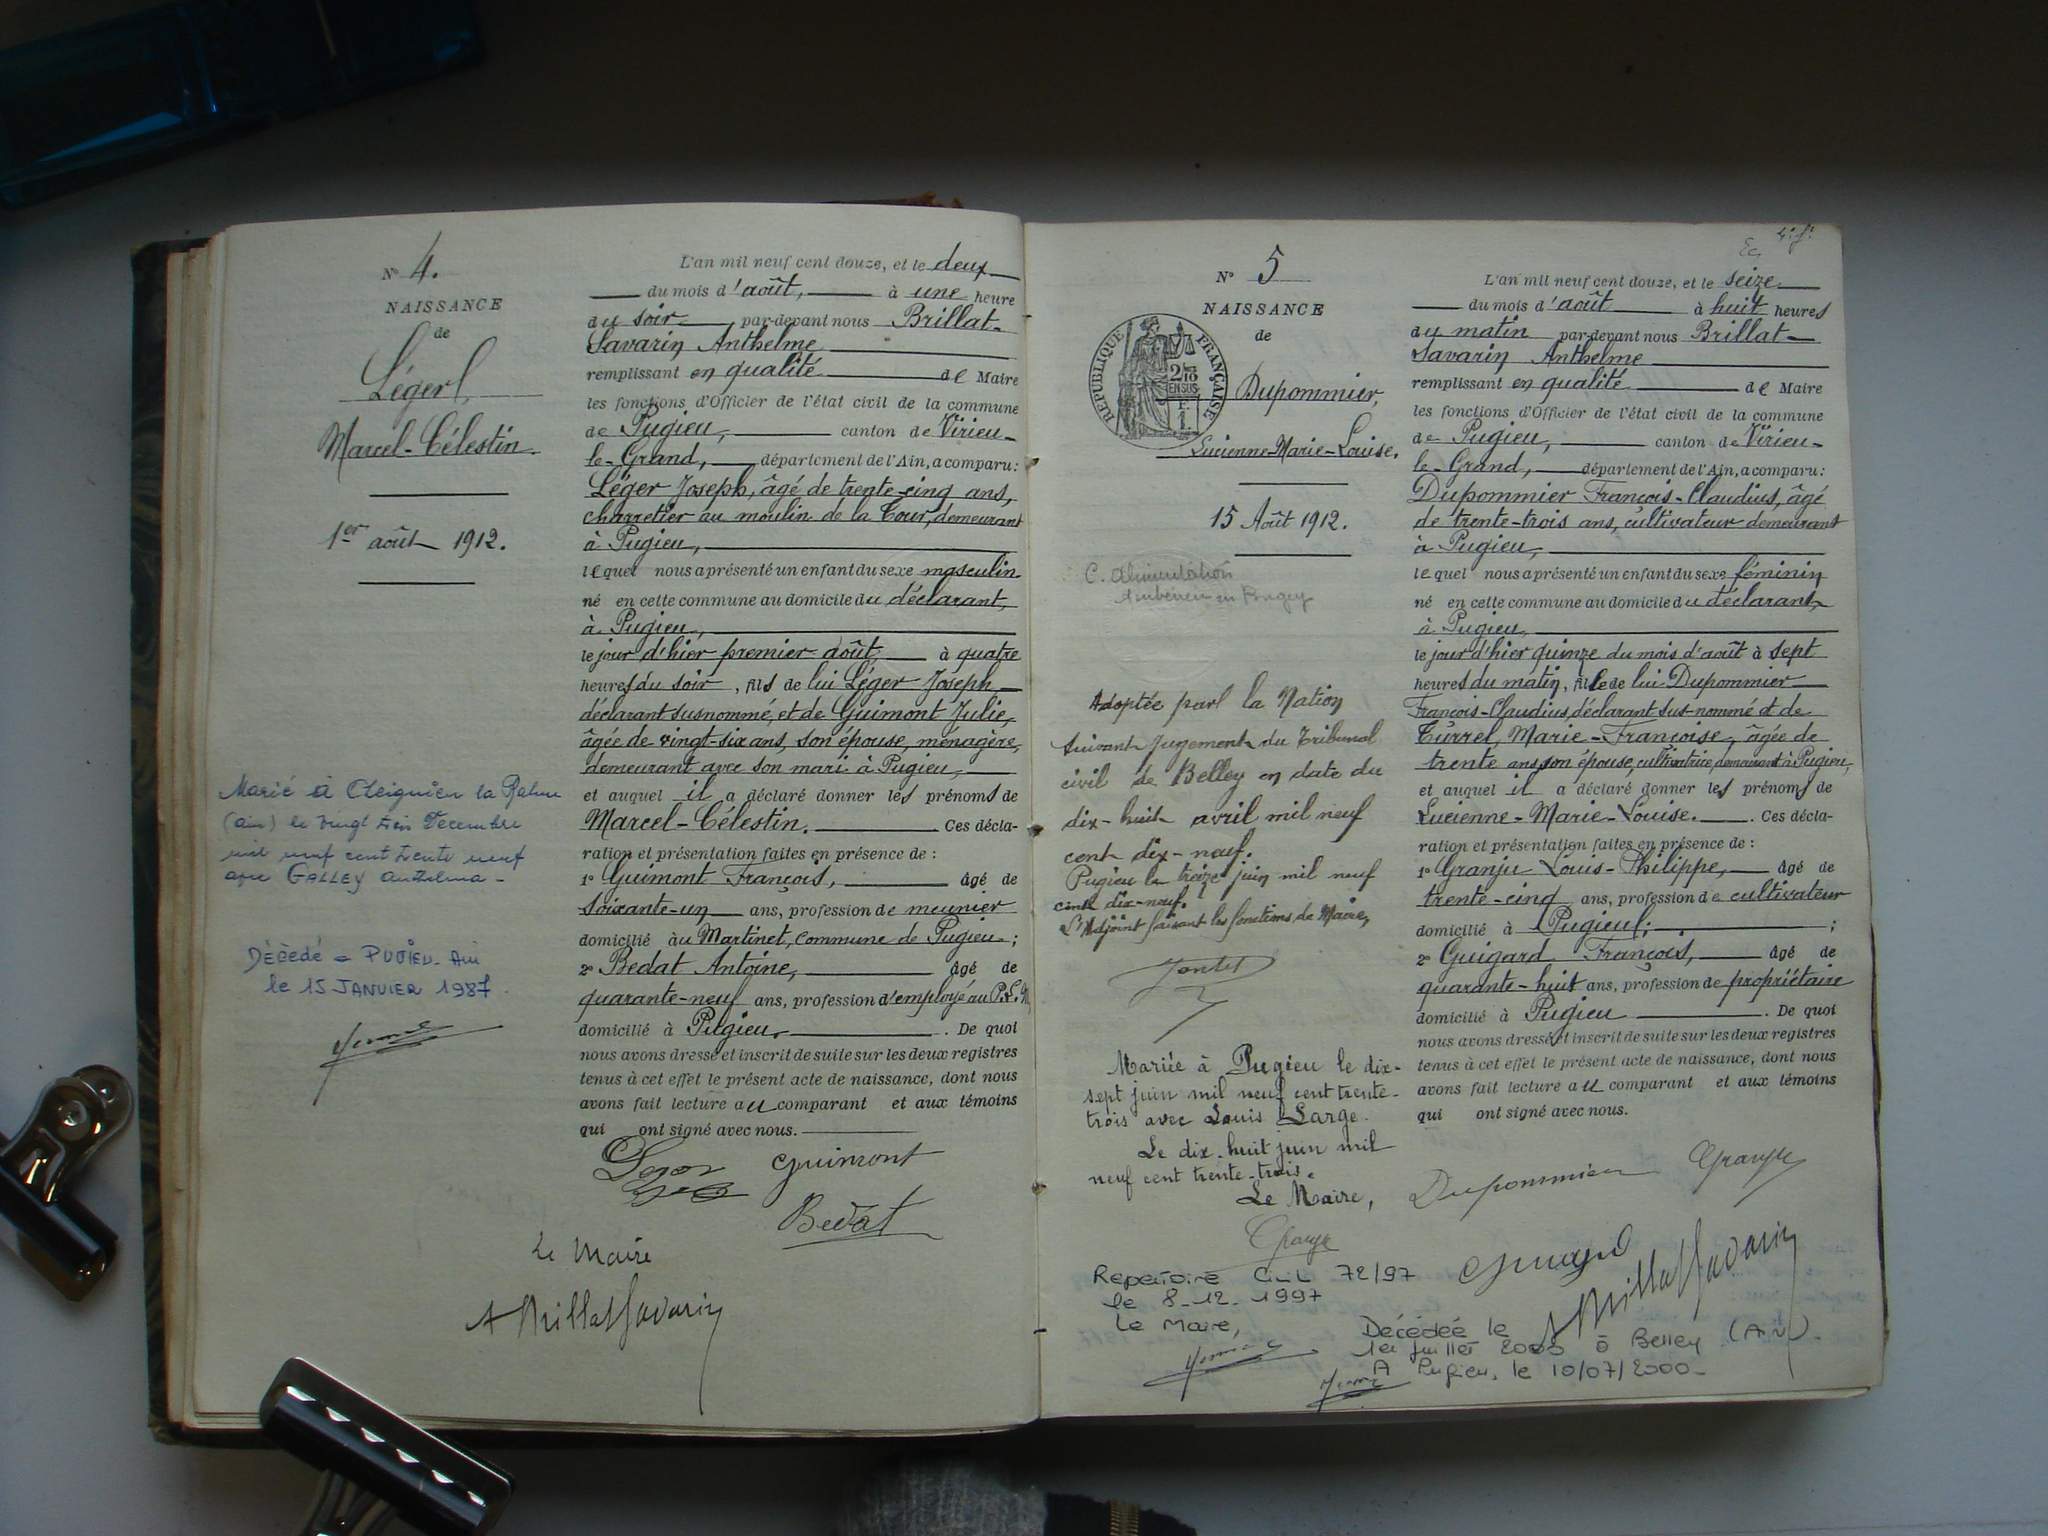 N° 4.
NAISSANCE
de
Léger
Marcel-Célestin.
1er août 1912.
Marié à Cheignieu la Balme
(ain) le vingt trois Décembre
mil neuf cent trente neuf
avec GALLEY Anthelma -
Décédé à PUGIEU - Ain
le 15 JANVIER 1987.
L'an mil neuf cent douze, et le deux
du mois d'août, à une heure
du soir par-devant nous Brillat-
Savarin Anthelme
remplissant en qualité de Maire
les fonctions d'Officier de l'état civil de la commune
de Pugieu, canton de Virieu-
le-Grand, département de l'Ain, a comparu:
Léger Joseph, âgé de trente-cinq ans,
charretier au moulin de la Tour, demeurant
à Pugieu,
lequel nous a présenté un enfant du sexe masculin
né en cette commune au domicile du déclarant,
à Pugieu,
le jour d'hier premier août à quatre
heures du soir, fils de lui Léger Joseph
déclarant susnommé, et de Guimont Julie,
âgée de vingt-six ans, son épouse, ménagère,
demeurant avec son mari à Pugieu,
et auquel il a déclaré donner les prénoms de
Marcel-Célestin. Ces décla-
ration et présentation faites en présence de :
1° Guimont François, âgé de
soixante-un ans, profession de meunier
domicilié au Martinet, commune de Pugieu ;
2° Bedat Antoine, âgé de
quarante-neuf ans, profession d'employé au P.L.M
domicilié à Pugieu. De quoi
nous avons dressé et inscrit de suite sur les deux registres
tenus à cet effet le présent acte de naissance, dont nous
avons fait lecture au comparant et aux témoins
qui ont signé avec nous.
Leger Guimont
Bedat
Le Maire
A Brillat Savarin
N° 5
NAISSANCE
de
RÉPUBLIQUE FRANÇAISE
Dupommier,
Lucienne-Marie-Louise.
15 Août 1912.
C. Alimentation
Ambérieu en Bugey
Adoptée par la Nation
suivant jugement du Tribunal
civil de Belley en date du
dix-huit avril mil neuf
cent dix-neuf.
Pugieu le treize juin mil neuf
cent dix-neuf.
L'Adjoint faisant les fonctions de Maire,
Mariée à Pugieu le dix-
sept juin mil neuf cent trente-
trois avec Louis Large.
Le dix-huit juin mil
neuf cent trente-trois.
Le Maire,
Repertoire Civil 72/97
le 8-12-1997
Le Maire,
L'an mil neuf cent douze, et le seize
du mois d'août à huit heures
du matin par-devant nous Brillat-
Savarin Anthelme
remplissant en qualité de Maire
les fonctions d'Officier de l'état civil de la commune
de Pugieu, canton de Virieu-
le-Grand, département de l'Ain, a comparu:
Dupommier François-Claudius, âgé
de trente-trois ans, cultivateur demeurant
à Pugieu,
lequel nous a présenté un enfant du sexe féminin
né en cette commune au domicile du déclarant,
à Pugieu,
le jour d'hier quinze du mois d'août à sept
heures du matin, fille de lui Dupommier
François-Claudius, déclarant sus-nommé et de
Turrel Marie-Françoise, âgée de
trente ans, son épouse, cultivatrice, demeurant à Pugieu,
et auquel il a déclaré donner les prénoms de
Lucienne-Marie-Louise. Ces décla-
ration et présentation faites en présence de :
1° Granju Louis-Philippe, âgé de
trente-cinq ans, profession de cultivateur
domicilié à Pugieu ;
2° Guigard François, âgé de
quarante-huit ans, profession de propriétaire
domicilié à Pugieu. De quoi
nous avons dressé et inscrit de suite sur les deux registres
tenus à cet effet le présent acte de naissance, dont nous
avons fait lecture au comparant et aux témoins
qui ont signé avec nous.
Dupommier Granju
Guigard
A Brillat Savarin
Décédée le
1er juillet 2000 à Belley (Ain).
A Pugieu, le 10/07/2000-